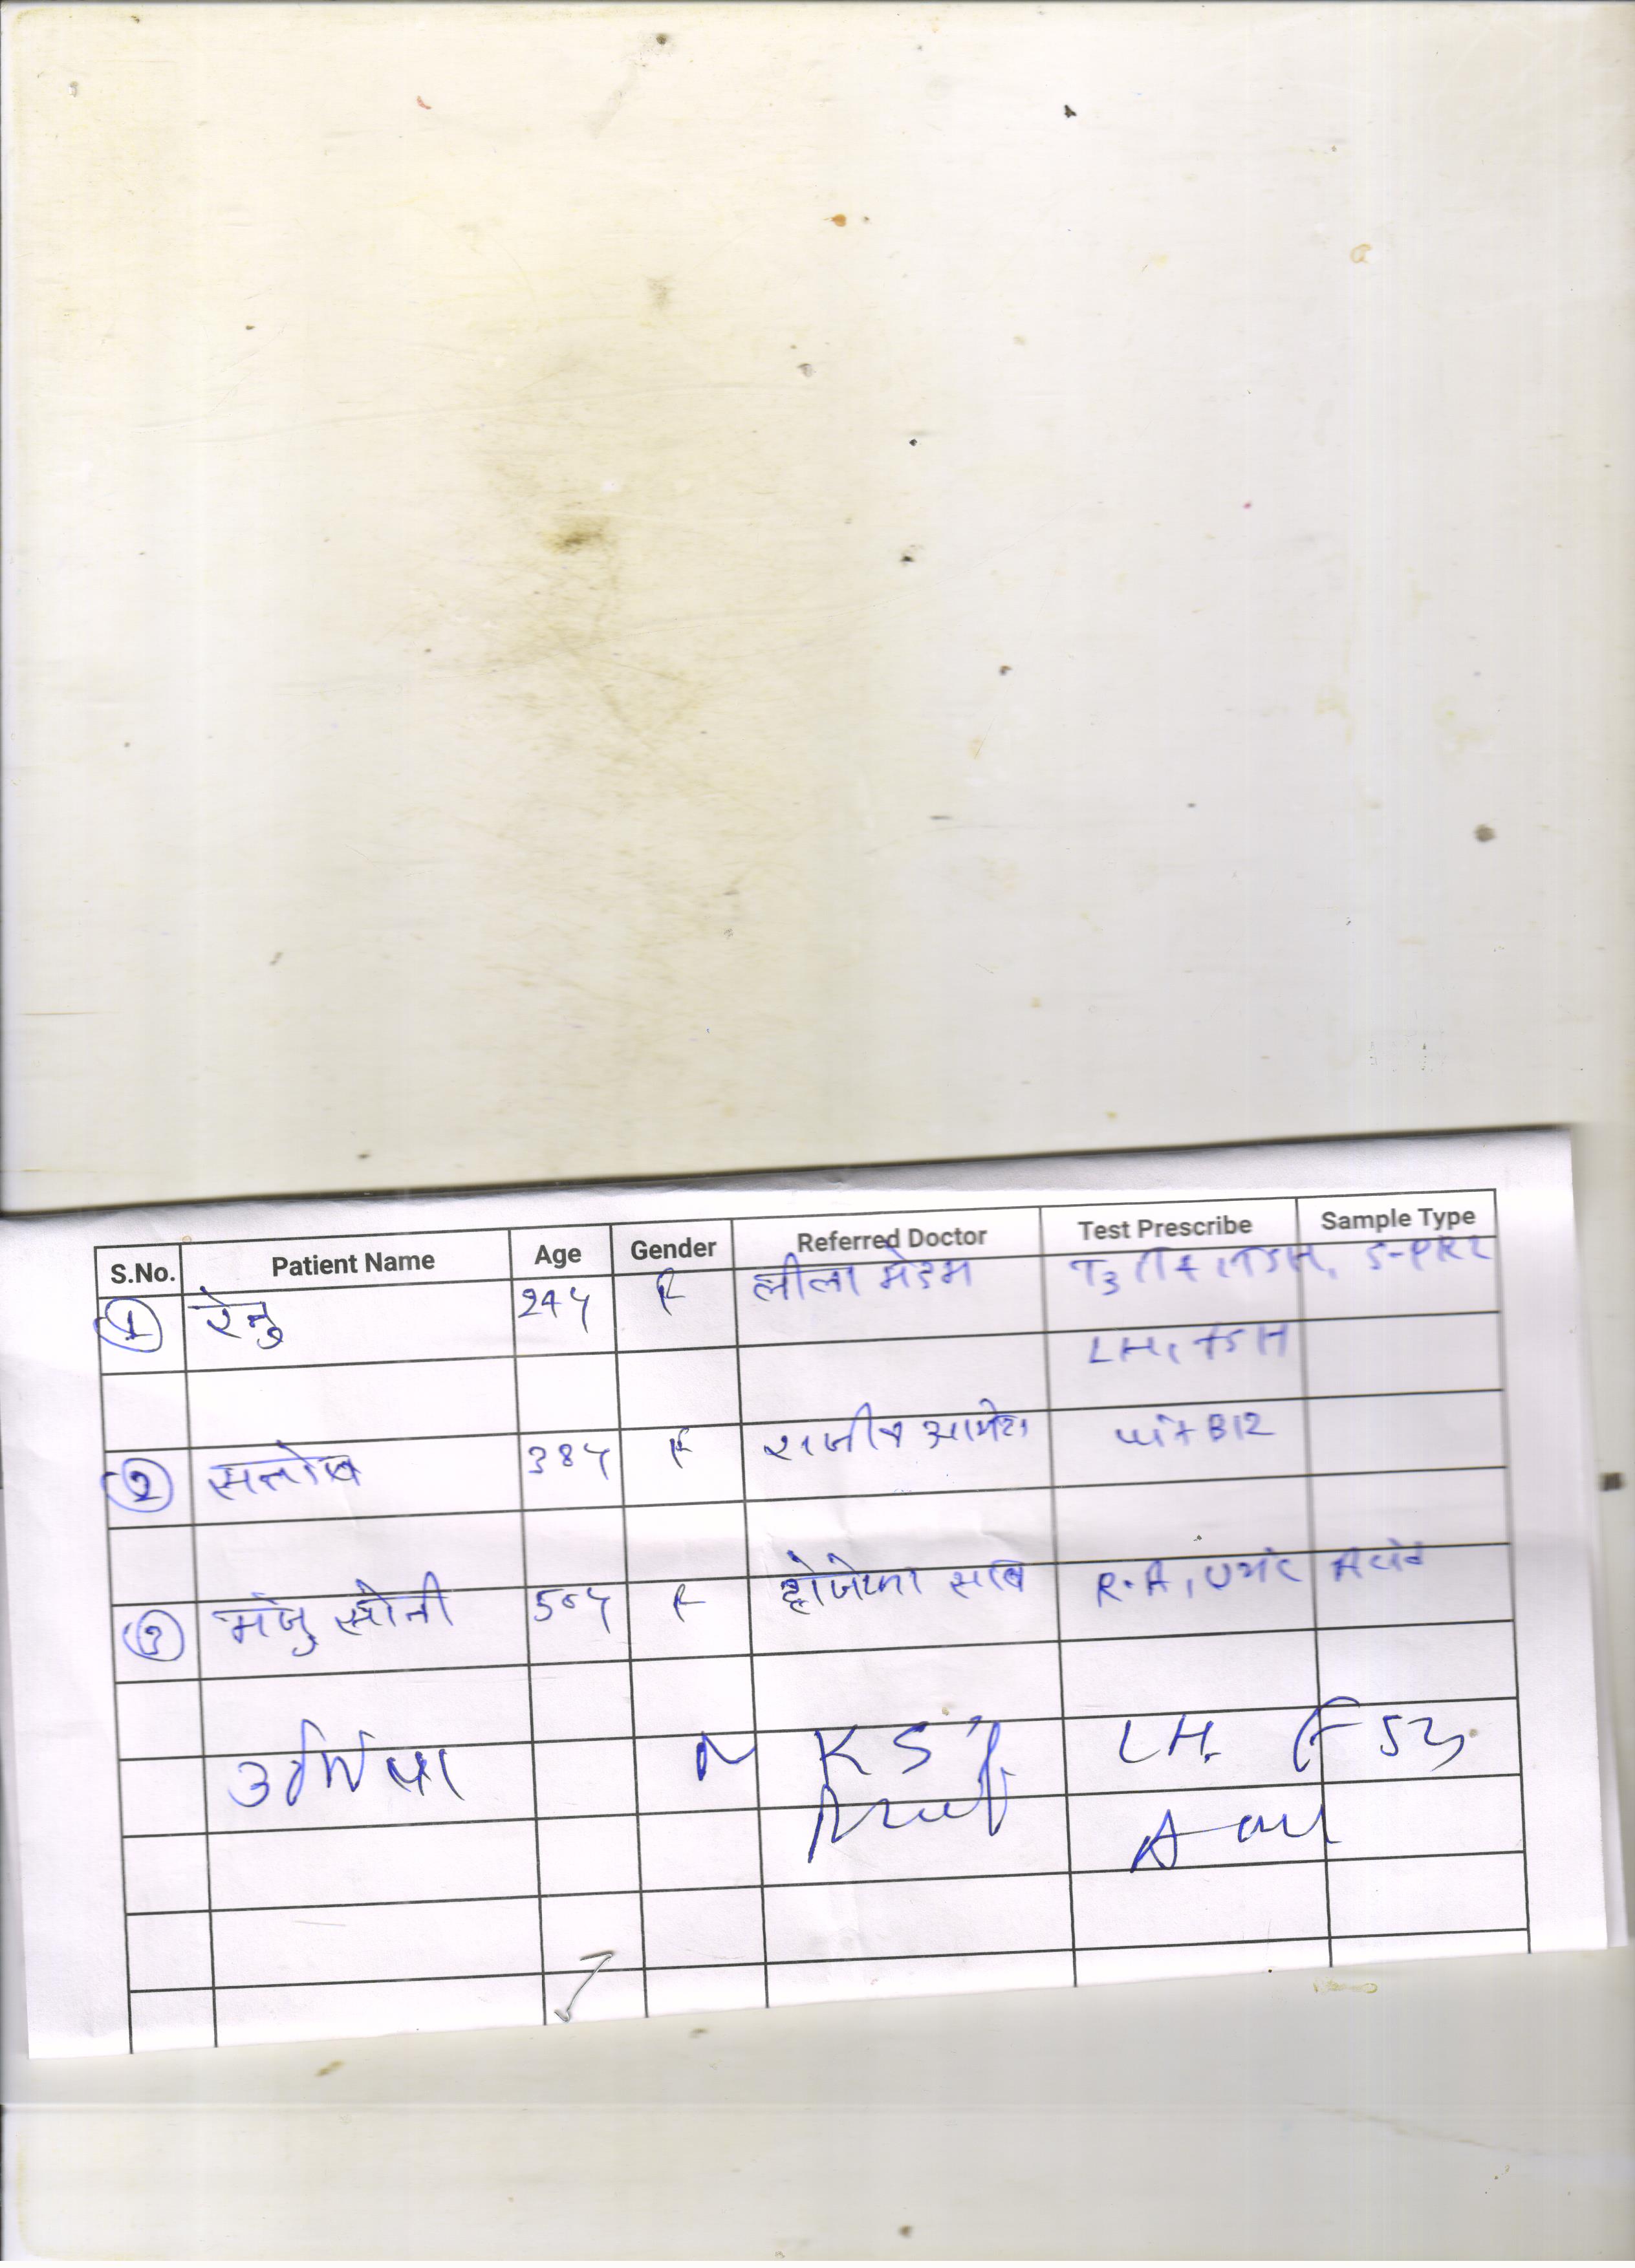 S.No. Patient Name Age Gender Referred Doctor Test Prescribe Sample Type
1 रेनु 24y F लीला मेडम T3, T4, TSH, S-PRL
LH, FSH
2 सन्तोष 38y F राजीव Vit B12
3 मंजु सोनी 50y F साब R.A, Uric Acid
M K S LH. FSH